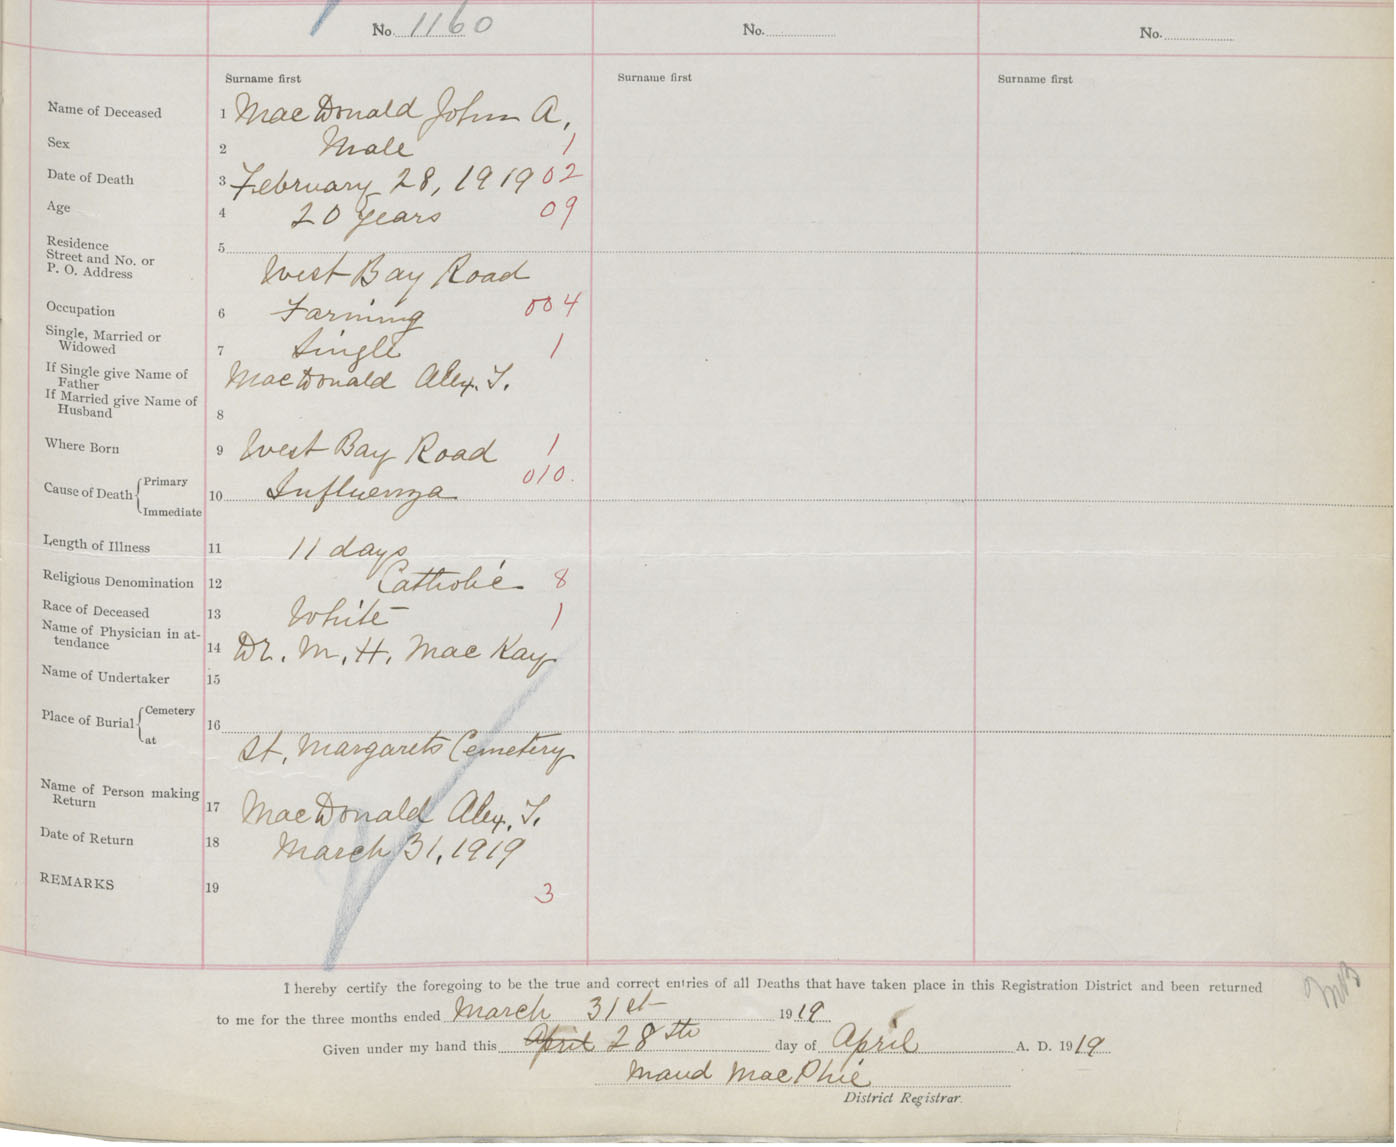 No. 1160 No. No.
Surname first Surname first Surname first
Name of Deceased 1 MacDonald John A,
Sex 2 Male 1
Date of Death 3 February 28, 1919 02
Age 4 20 years 09
Residence 5
Street and No. or
P. O. Address West Bay Road
Occupation 6 Farming 004
Single, Married or
Widowed 7 Single 1
If Single give Name of
Father MacDonald Alex. J.
If Married give Name of
Husband 8
Where Born 9 West Bay Road 1
Cause of Death { Primary 010.
10 Influenza
Immediate
Length of Illness 11 11 days
Religious Denomination 12 Catholic 8
Race of Deceased 13 White 1
Name of Physician in at-
tendance 14 Dr. M. H. MacKay
Name of Undertaker 15
Place of Burial { Cemetery
16
at St. Margarets Cemetery
Name of Person making
Return 17 MacDonald Alex. J.
Date of Return 18 March 31, 1919
REMARKS 19 3
I hereby certify the foregoing to be the true and correct entries of all Deaths that have taken place in this Registration District and been returned
to me for the three months ended March 31st 1919
Given under my hand this April 28th day of April A. D. 1919
Maud MacPhie
District Registrar.